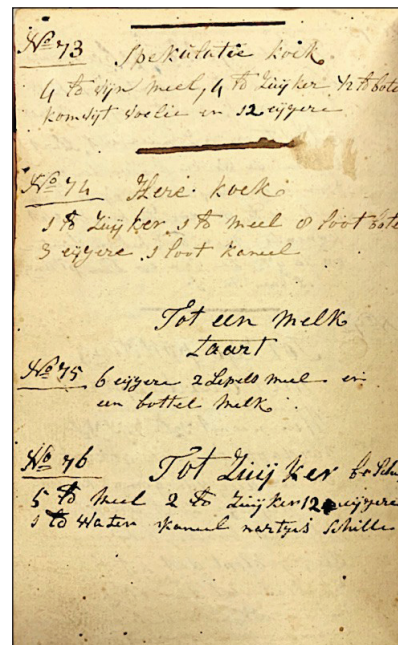 No 73 Spekulatie koek
4 ℔ vijn meel, 4 ℔ Zuijker ½ ℔ bote
komijt voelie en 12 eijere
No 74 Here koek
1 ℔ Zuijker 1 ℔ meel 8 loot bote
3 eijere 1 loot kaneel
Tot een melk
taart
No 75 6 eijere 2 Lepels meel en
een bottel melk
No 76 Tot Zuijker
5 ℔ meel 2 ℔ Zuijker 12 eijere
1 ℔ Water kaneel nartjes Schille